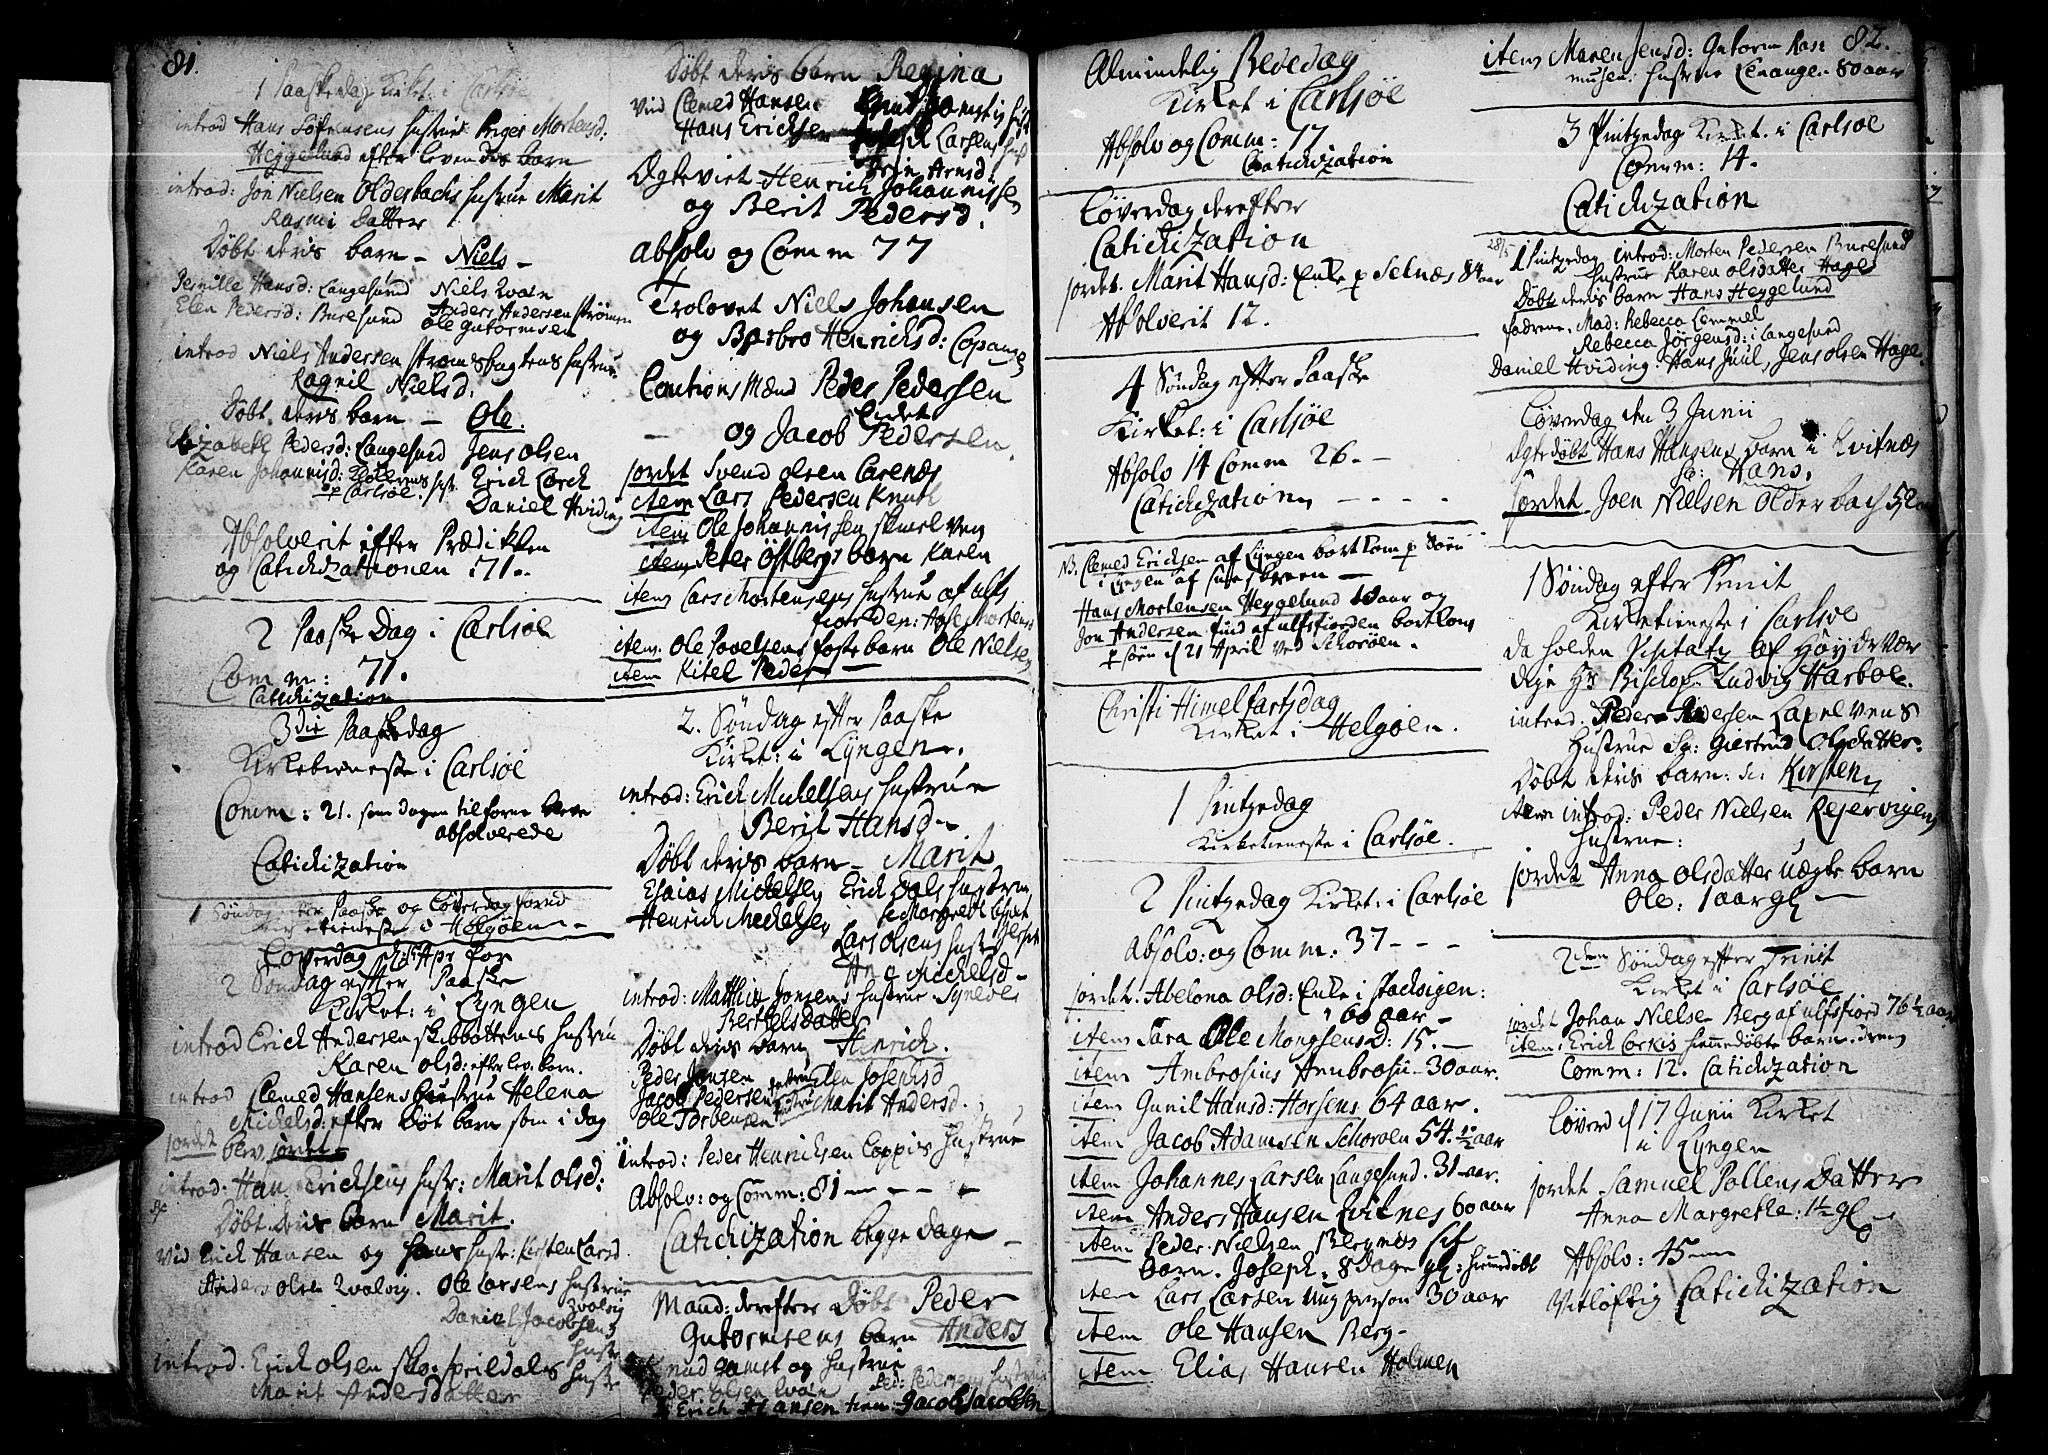 81.
1 Paaskedag Kirket: i Carlsøe
introd Hans Søfrensens hustrue Inger Mortensd:
Heggelund efter levendes barn
introd: Jon Nielsen Olderbachs hustrue Marit
Rasmi Datter
Døbt deris barn - Niels -
Pernille Hansd: Langesund Niels Qvæn
Elen Pedersd: Buresund Anders Andersen Strømen
Ole Gutormsen
introd Niels Andersen Stromsbugtens hustrue
Ragnil Nielsd.
Døbt deris barn - Ole.
Elizabeth Pedersd: Langesund Jens Olsen
Karen Johannisd: Erick Lorck
p Carlsöe Daniel Hviding
Absolverit efter Prædikken
og Catichizationen 71.
2 Paaske Dag i Carlsøe
Comm: 71.
Catichization
3die Paaskedag
Kirketieneste i Carlsøe
Comm: 21. som dagen tilforne bleve
absolverede
Catichization
1 Søndag efter Paaske og Løverdag forud
Kirketieneste i Helgøen -
Løverdag d 15 Apr for
2 Søndag efter Paaske
Kirket: i Lyngen
introd Erich Andersen Skibbottens hustrue
Karen Olsd: efter lev. barn.
introd Clemed Hansens hustrue Helena
Mickelsd: efter Døt barn som i dag
blev jordet
introd: Hans Ericksens hustr: Marit Olsd:
Døbt deris barn Marit.
Vid Erich Hansen og hans hustr: Kirsten Larsd
Anders Olsen Qvalvig. Ole Larsens hustrue
Qvalvig
Daniel Jacobsens
hustr
introd. Erich Olsen Skogsfieldals hustr
Marit Andersdatter
Døbt deris barn Regina
Vid Clemed Hansen Knud Gamst ig hustr
Hans Ericksen Joseph Larsens hustr
Arnsd:
Ægteviet Henrich Johannissen
og Berit Pedersd.
Absolv og Comm 77
Trolovet Niels Johansen
og Barbro Henricksd: Copangen
Cautions Mænd Peder Pedersen
Eidet
og Jacob Pedersen.
jordet Svend Olsen Carenæs
item Lars Pedersen Knuth
item Ole Johannissen Skiel ven
item Peter Østbergs barn Karen
item Lars Mortensens hustrue af Ulfs
fiorden: Aase Mortensd
item. Ole Povelsens foste barn Ole Nielsen
item Kitel Peder
2. Søndag efter Paaske
Kirket: i Lyngen.
introd: Erick Mickelsens hustrue
Berit Hansd -
Døbt deris barn - Marit
Esaias Mickelsen Erich Dals hustrue
Henrich Mickelsen Margrethe
Lars Olsens hustr
Ane Mickelsd -
introd: Matthias Jonsens hustrue Synnøve
Berthelsdatter
Døbt deris barn Henrich.
Peder Jonsen Elen Josephsd
Jacob Pedersen Marit Andersd.
Ole Torbensen
introd: Peder Henricksen Coppis hustrue
Absolv: og Comm: 81 - - - -
Catichization begge dage -
Mand: derefter Døbt Peder
Gutormsens barn Anders
Knud Gamst og hustrue
Peder Olsen Qvæn Ped: Pedersens hustrue
Erich Hansen tien: Jacob Jacobsen
Almindelig Bededag
Kirket i Carlsøe
Absolv og Comm: 77
Catichization
Løverdag derefter
Catichization
jordet. Marit Hansd: Enke p Selnæs 84 aar
Absolverit 12.
4 Søndag efter Paaske
Kirket: i Carlsøe
Absolv 14 Comm 26. -
Catichization - - - -
NB. Clemed Ericksen af Lyngen bortkom p Søen
i Lyngen af
Hans Mortensen Heggelund aar og
Jon Andersen Fuid af Ulfsfiorden bortkom
p søen d 21 April ved Schorøen.
Christi Himelfartsdag
Kirket i Helgøen.
1 Pintzedag
Kirketieneste i Carlsøe.
2 Pintzedag Kirket: i Carlsøe
Absolv: og Comm: 37 - - -
jordet. Abelona Olsd: Enke i Stachvigen:
60 aar -
item Sara Ole Mongsensd: 15. -
item Ambrosius Ambrosii - 30 aar.
item Gunil Hansd: Horsens 64 aar.
item Jacob Adamsen Schoroen 54. 1/2 aar
item Johannes Larsen Langesund. 31 aar.
item Anders Hansen Qvitnes 60 aar
item Peder Nielsen Bergnes
barn. Joseph. 8 Dage gl: hiemedöbt
item Lars Larsen Ung person 30 aar
item Ole Hansen Berg -
item Elias Hansen Holmen
82.
item Maren Jensd: Gutorm Ras
musen: hustrue Lenangen 80 aar
3 Pintzedag Kirket. i Carlsøe
Comm: 14.
Catichization
28/5 1 Pintzedag introd: Morten Pedersen Buresund
hustrue Karen Olsdatter Hage
Døbt deris barn Hans Heggelund
fadrene. Mad: Rebecca Lommel
Rebecca Jörgensd: i Langesund
Daniel Hviding. Hans Juul, Jens Olsen Hage.
Løverdag den 3 Junii
Ægte døbt Hans Hansens barn i Kvitnæs
Hans.
jordet Joen Nielsen Olderbach 52 aar
1 Søndag efter Trinit
Kirketieneste i Carlsøe
da holden Visitatz af Høyærvær
dige Hr Biskop Ludvig Harboe.
introd. Peder Andersen Lapelvens
Hustrue Giertrud Olsdatter
Døbt deris barn: Kirsten
item introd: Peder Nielsen Rejervigens
Hustrue:
jordet Anna Olsdatter uægte barn
Ole: 1 aar gl -
2den Søndag efter Trinit
Kirket i Carlsøe
jordet Johan Nielsen Berg af Ulfsfiord 76 1/2 aar
item. Erich Corkis hiemedøbte barn. dreng
Comm: 12. Catichization
Løverd d 17 Junii Kirket
i Lyngen
jordet Samuel Pollens Datter
Anna Margrethe: 1/2 gl
Absolv: 45
Vitløftig Catichization